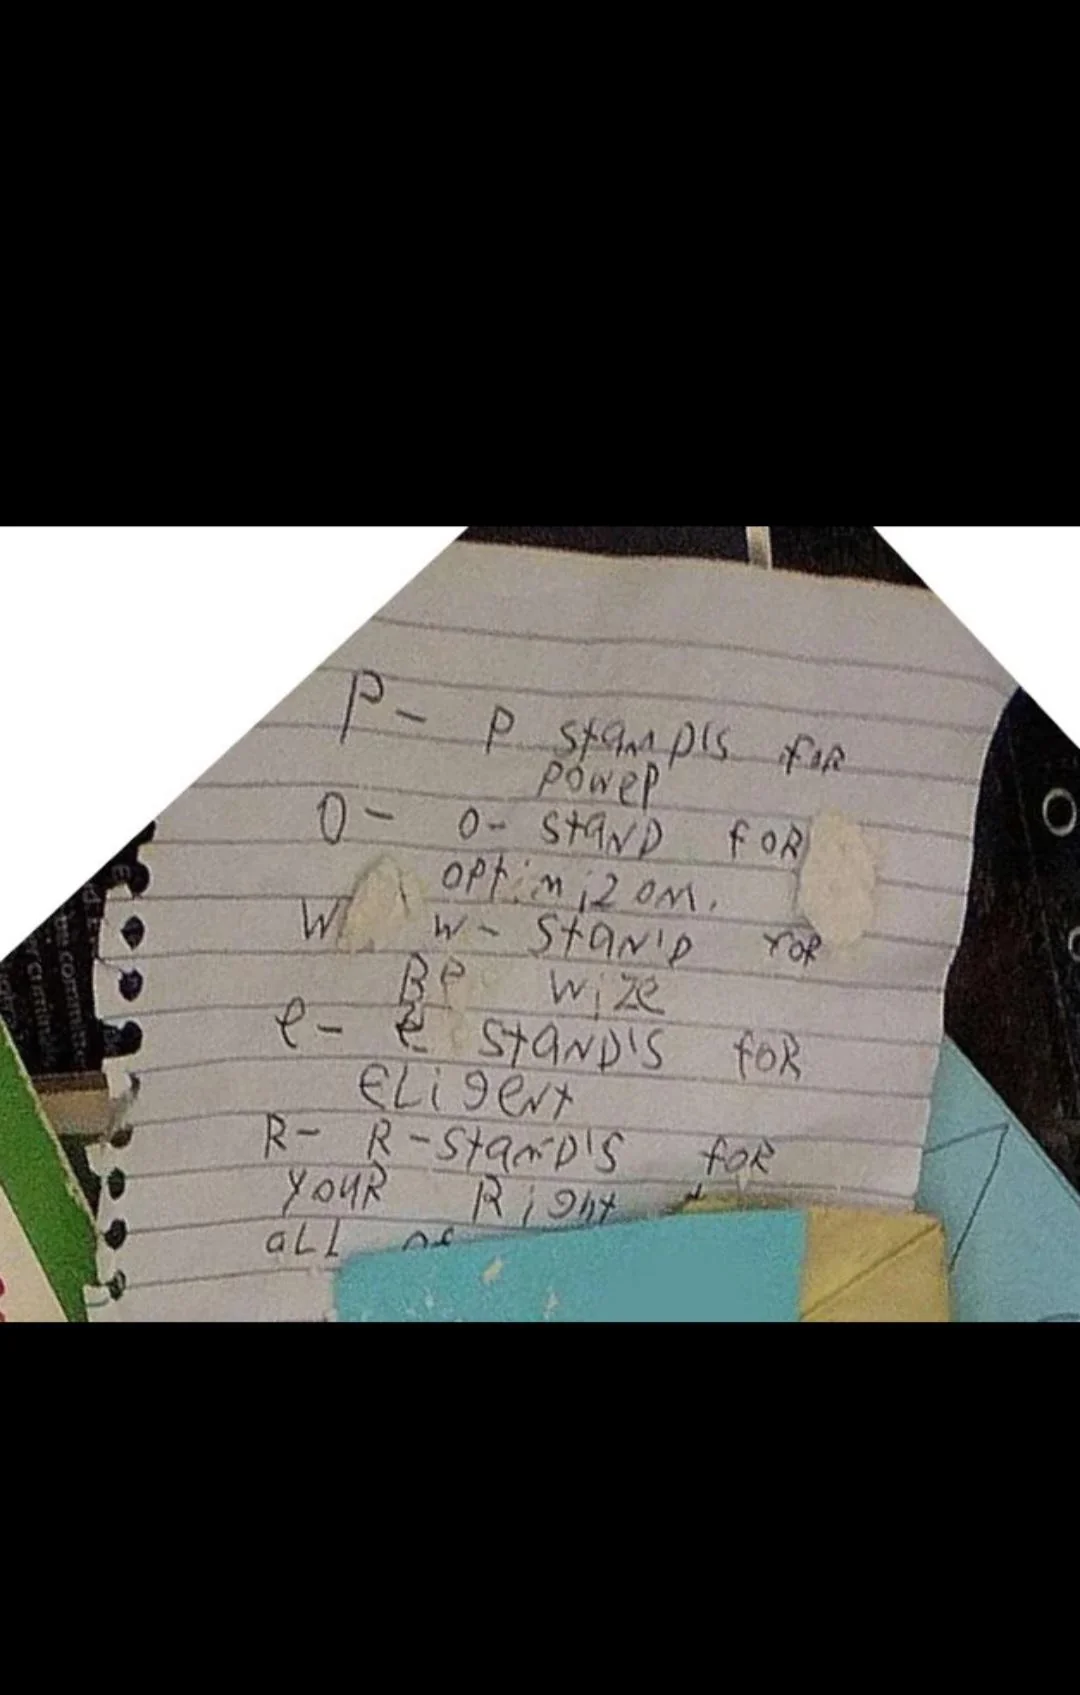 P- P StamD's foR
poweP
O- O- StaND foR
optimizom.
W W- StaN'D foR
Be Wize
e- e StaND'S foR
ELigent
R- R-StanD'S foR
YouR Right
aLL of